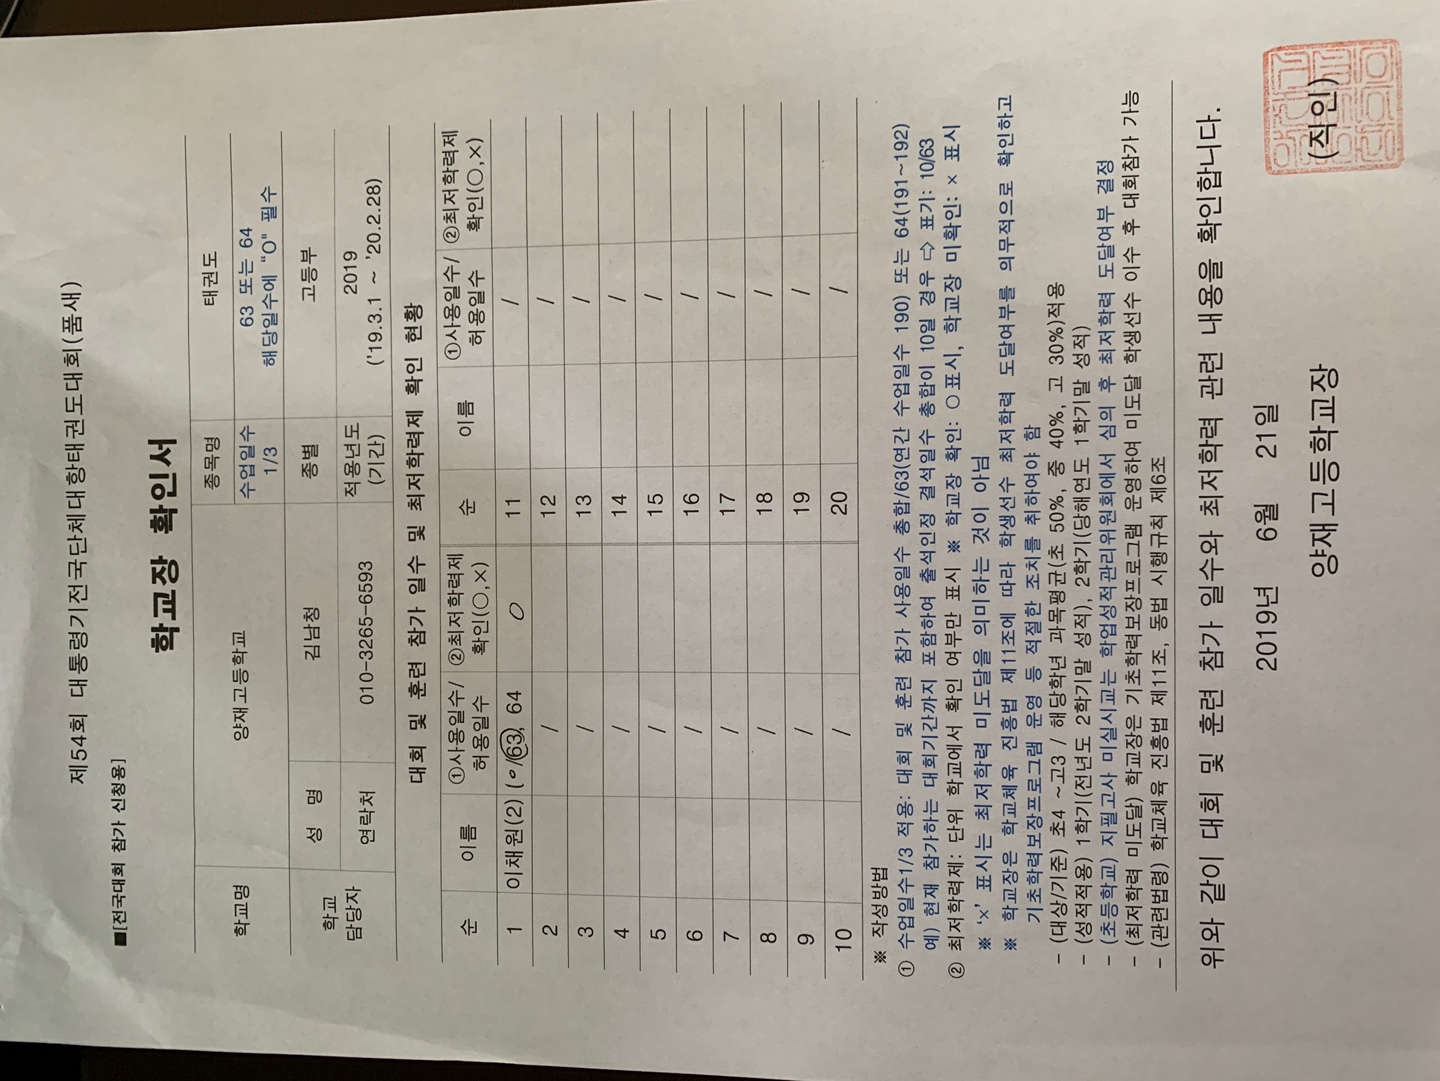 제54회 대통령기전국단체대항태권도대회(품새)
■[전국대회 참가 신청용]
학교장 확인서
학교명 양재고등학교 종목명 태권도
수업일수 1/3 63 또는 64 해당일수에 "O" 필수
학교 담당자 성 명 김남청 종별 고등부
연락처 010-3265-6593 적용년도 (기간) 2019 ('19.3.1 ~ '20.2.28)
대회 및 훈련 참가 일수 및 최저학력제 확인 현황
순 이름 ①사용일수/허용일수 ②최저학력제 확인(○,×) 순 이름 ①사용일수/허용일수 ②최저학력제 확인(○,×)
1 이채원(2) (0/63, 64 O 11 /
2 / 12 /
3 / 13 /
4 / 14 /
5 / 15 /
6 / 16 /
7 / 17 /
8 / 18 /
9 / 19 /
10 / 20 /
※ 작성방법
① 수업일수1/3 적용: 대회 및 훈련 참가 사용일수 총합/63(연간 수업일수 190) 또는 64(191~192)
예) 현재 참가하는 대회기간까지 포함하여 출석인정 결석일수 총합이 10일 경우 ⇨ 표기: 10/63
② 최저학력제: 단위 학교에서 확인 여부만 표시 ※ 학교장 확인: ○표시, 학교장 미확인: × 표시
※ '×' 표시는 최저학력 미도달을 의미하는 것이 아님
※ 학교장은 학교체육 진흥법 제11조에 따라 학생선수 최저학력 도달여부를 의무적으로 확인하고
기초학력보장프로그램 운영 등 적절한 조치를 취하여야 함
- (대상/기준) 초4 ~고3 / 해당학년 과목평균(초 50%, 중 40%, 고 30%)적용
- (성적적용) 1학기(전년도 2학기말 성적), 2학기(당해연도 1학기말 성적)
- (초등학교) 지필고사 미실시교는 학업성적관리위원회에서 심의 후 최저학력 도달여부 결정
- (최저학력 미도달) 학교장은 기초학력보장프로그램 운영하여 미도달 학생선수 이수 후 대회참가 가능
- (관련법령) 학교체육 진흥법 제11조, 동법 시행규칙 제6조
위와 같이 대회 및 훈련 참가 일수와 최저학력 관련 내용을 확인합니다.
2019년 6월 21일
양재고등학교장 (직인)